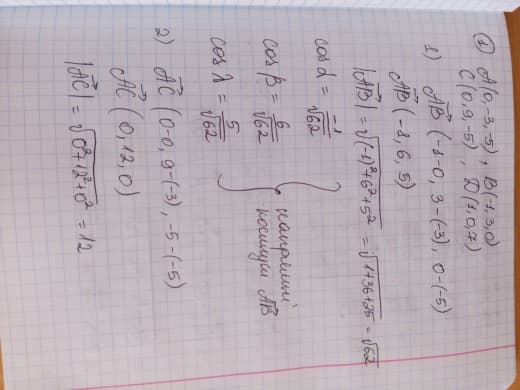 ① A(0,-3,-5), B(-1,3,0)
C(0,9,-5), D(1,0,7)
1) A⃗B (-1-0, 3-(-3), 0-(-5))
A⃗B (-1,6,5)
|A⃗B| = √((-1)²+6²+5²) = √(1+36+25) = √62
cos α = -1/√62
cos β = 6/√62
cos λ = 5/√62
напрямні
косинуси A⃗B
2) A⃗C (0-0, 9-(-3), -5-(-5)
A⃗C (0,12,0)
|A⃗C| = √(0²+12²+0²) = 12